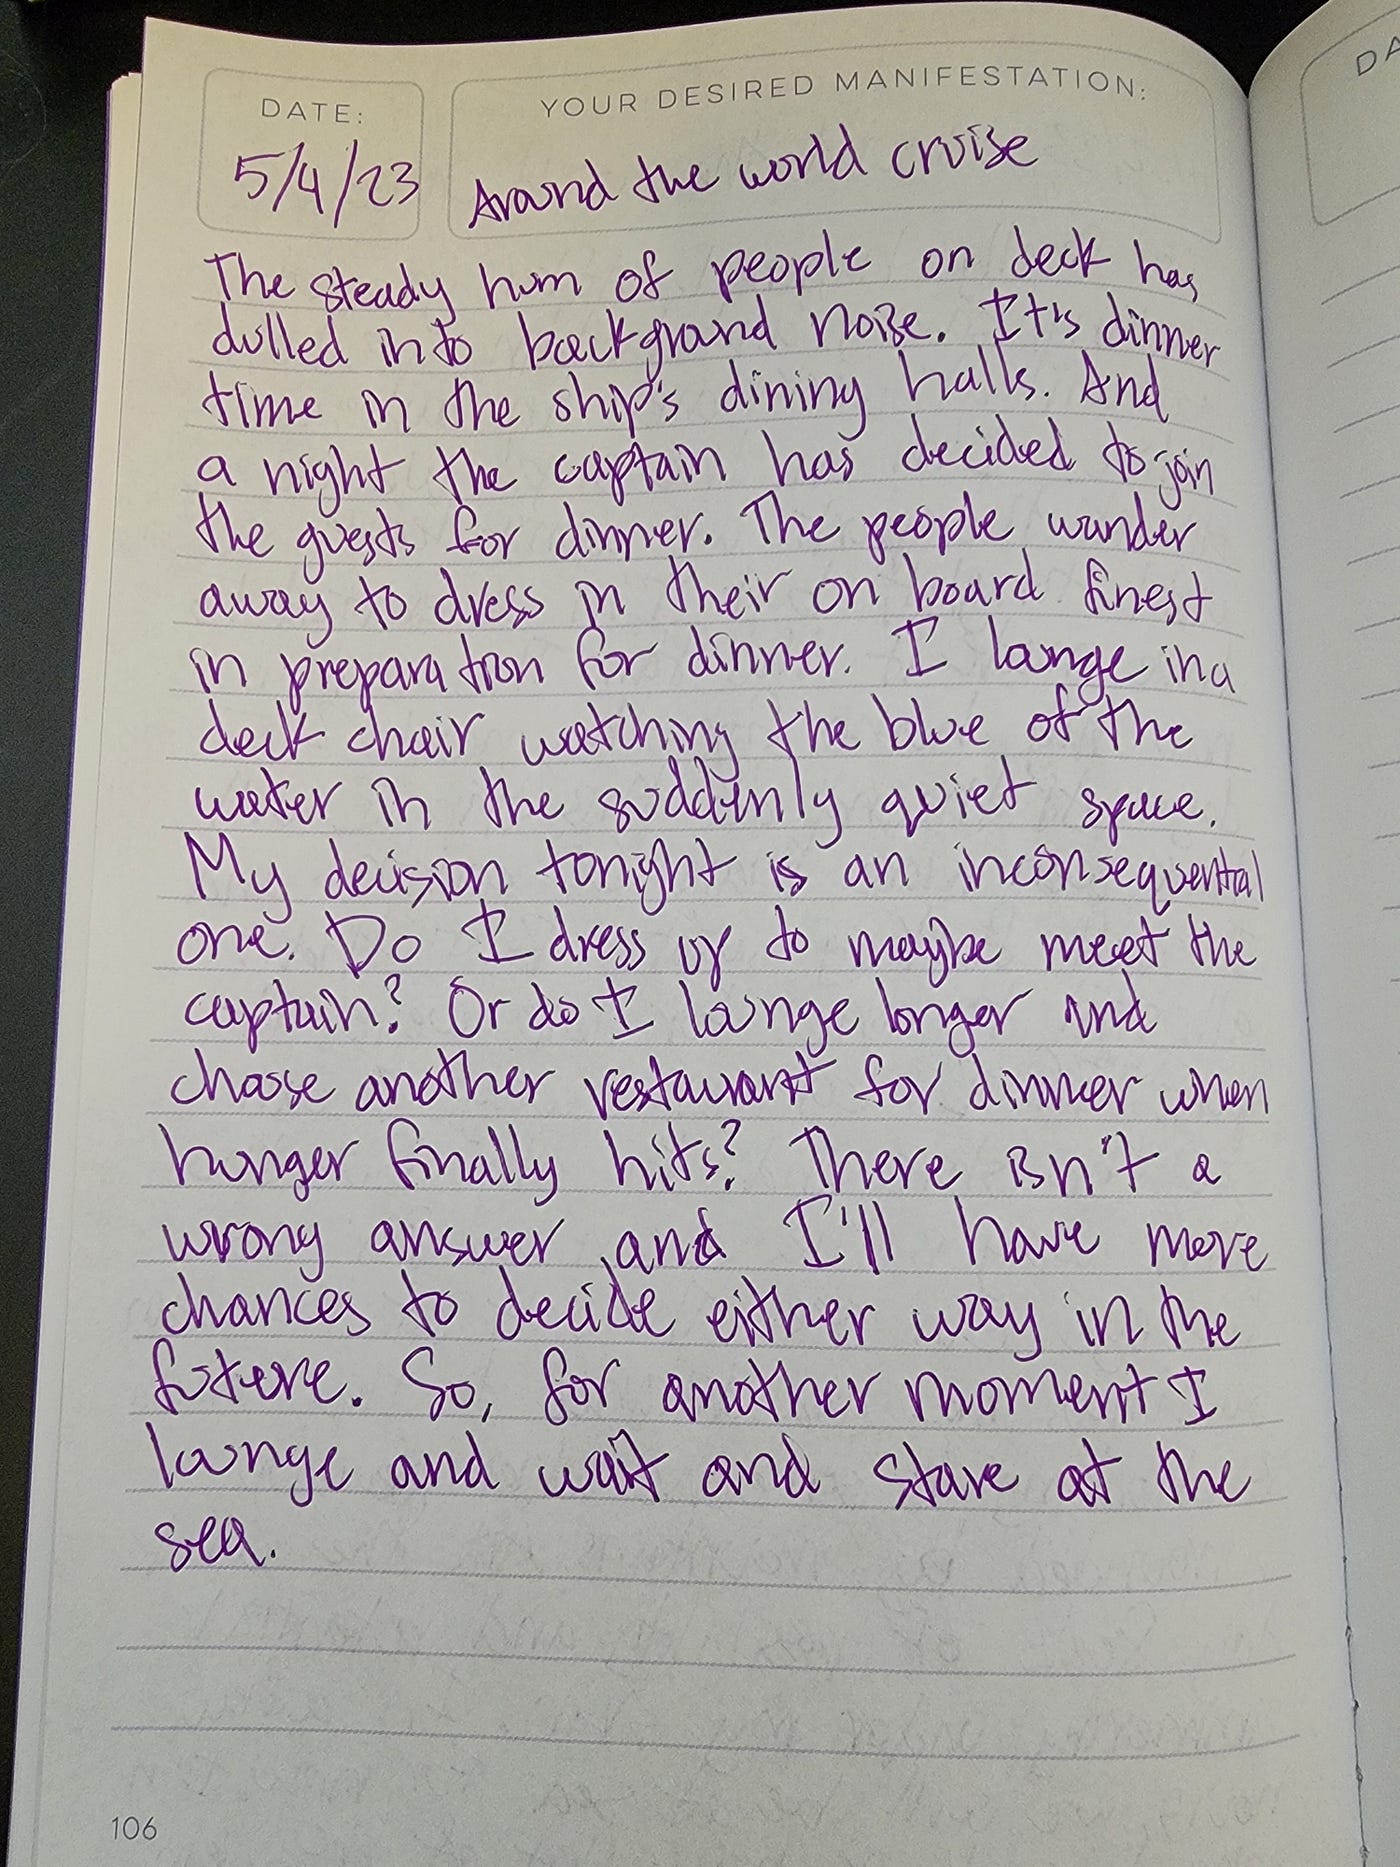 DATE:
YOUR DESIRED MANIFESTATION:
DA
5/4/23
Around the world cruise
The steady hum of people on deck has
dulled into background noise. It's dinner
time in the ship's dining halls. And
a night the captain has decided to join
the guests for dinner. The people wander
away to dress in their on board finest
in preparation for dinner. I lounge in a
deck chair watching the blue of the
water in the suddenly quiet space.
My decision tonight is an inconsequential
one. Do I dress up to maybe meet the
captain? Or do I lounge longer and
chose another restaurant for dinner when
hunger finally hits? There isn't a
wrong answer and I'll have more
chances to decide either way in the
future. So, for another moment I
lounge and wait and stare at the
sea.
106